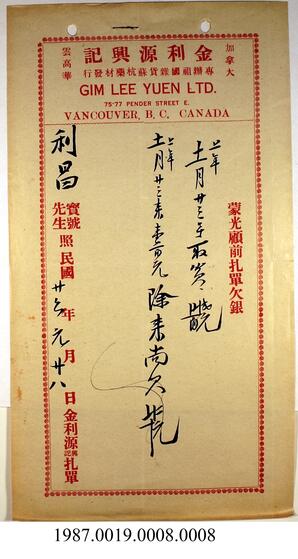 金利源興記
加拿大
雲高華
專辦祖國雜貨蘇杭藥材發行
GIM LEE YUEN LTD.
75-77 PENDER STREET E.
VANCOUVER, B. C., CANADA
蒙光顧前扎單欠銀
上年十一月廿三
上年十一月廿三來
元 除來尚欠
利昌
寶號
先生
照民國廿三年元月廿八日金利源興記扎單
1987.0019.0008.0008